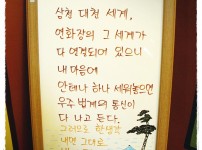 삼천 대천 세계,
연화장의 그 세계가
다 연결되어 있으니
내 마음에
안테나 하나 세워놓으면
우주 법계의 통신이
다 나고 든다.
그러므로 한생각
내면 그대로